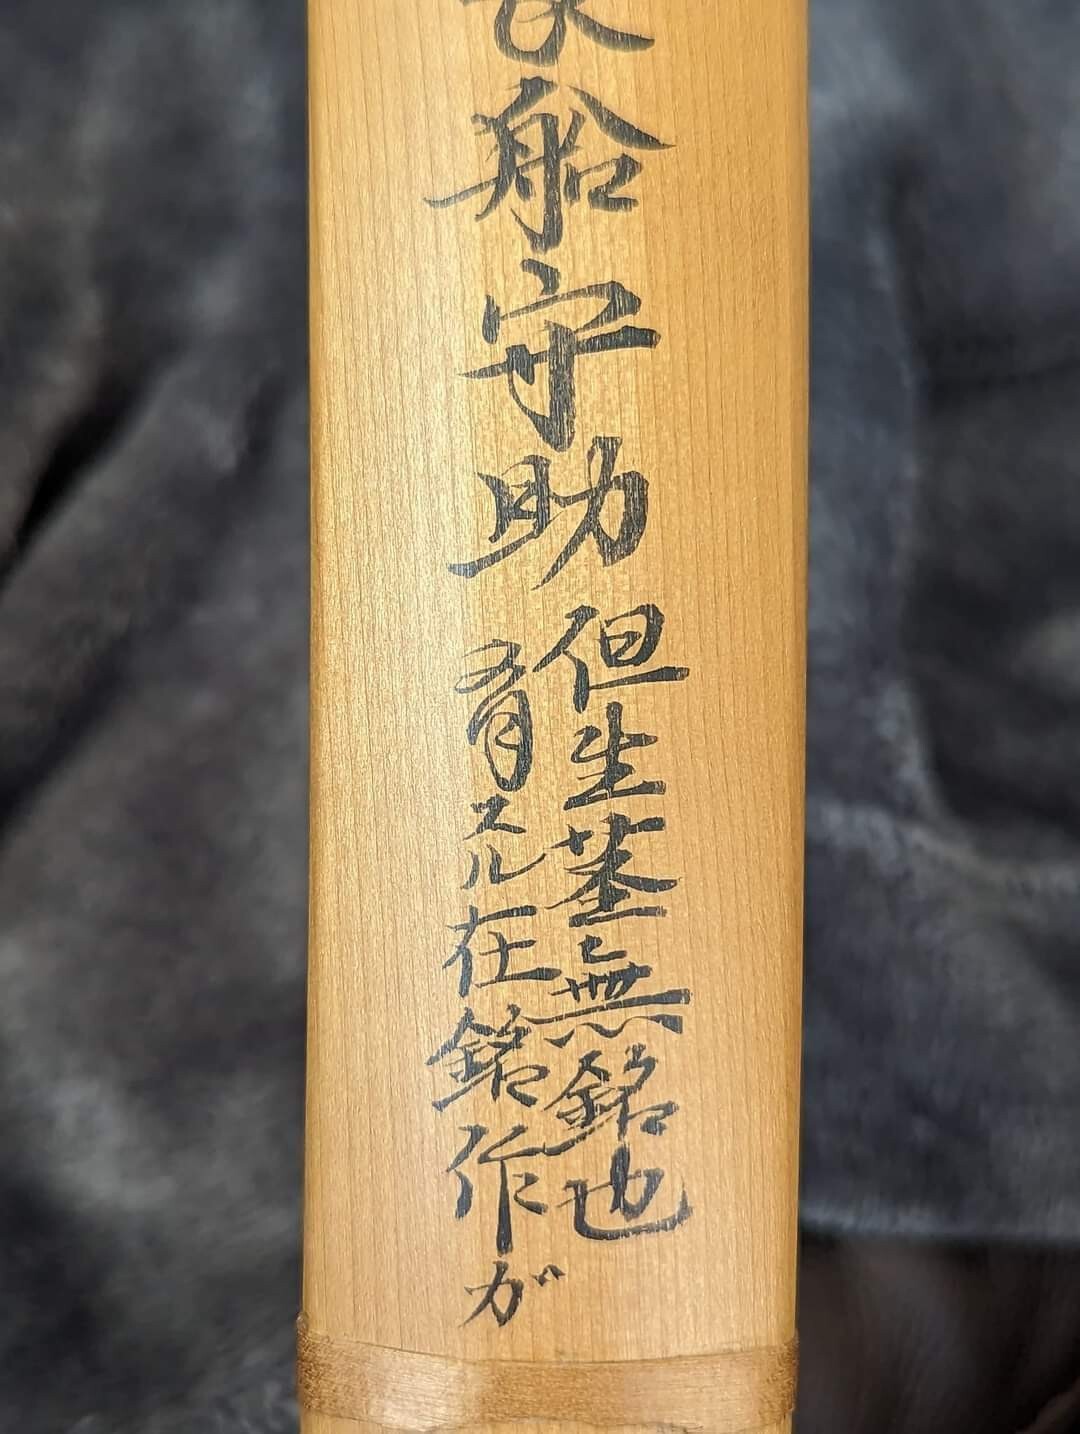 長船守助
但生茎無銘也
有スル在銘作ガ